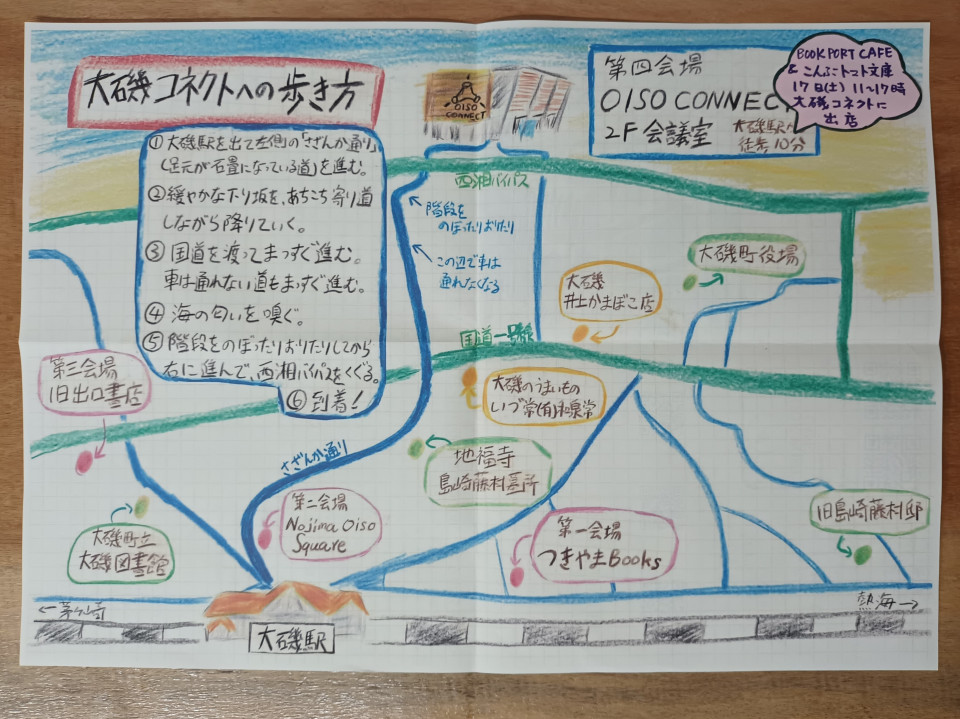 大磯コネクトへの歩き方
①大磯駅を出て左側の「さざんか通り」
(足元が石畳になっている道)を進む。
②緩やかな下り坂を、あちこち寄り道
しながら降りていく。
③国道を渡ってまっすぐ進む。
車は通れない道もまっすぐ進む。
④海の匂いを嗅ぐ。
⑤階段をのぼったりおりたりしてから
右に進んで、西湘バイパスをくぐる。
⑥到着!
OISO
CONNECT
第四会場
OISO CONNECT
2F会議室
大磯駅から
徒歩10分
BOOKPORT CAFE
& こんぶトマト文庫
17日(土) 11~17時
大磯コネクトに
出店
西湘バイパス
階段を
のぼったりおりたり
この辺で車は
通れなくなる
大磯町役場
大磯
井上かまぼこ店
国道一号線
大磯のうまいもの
いづ常(有)和泉常
第三会場
旧出口書店
さざんか通り
地福寺
島崎藤村墓所
第二会場
Nojima Oiso
Square
第一会場
つきやまBooks
旧島崎藤村邸
大磯町立
大磯図書館
←茅ヶ崎
熱海→
大磯駅